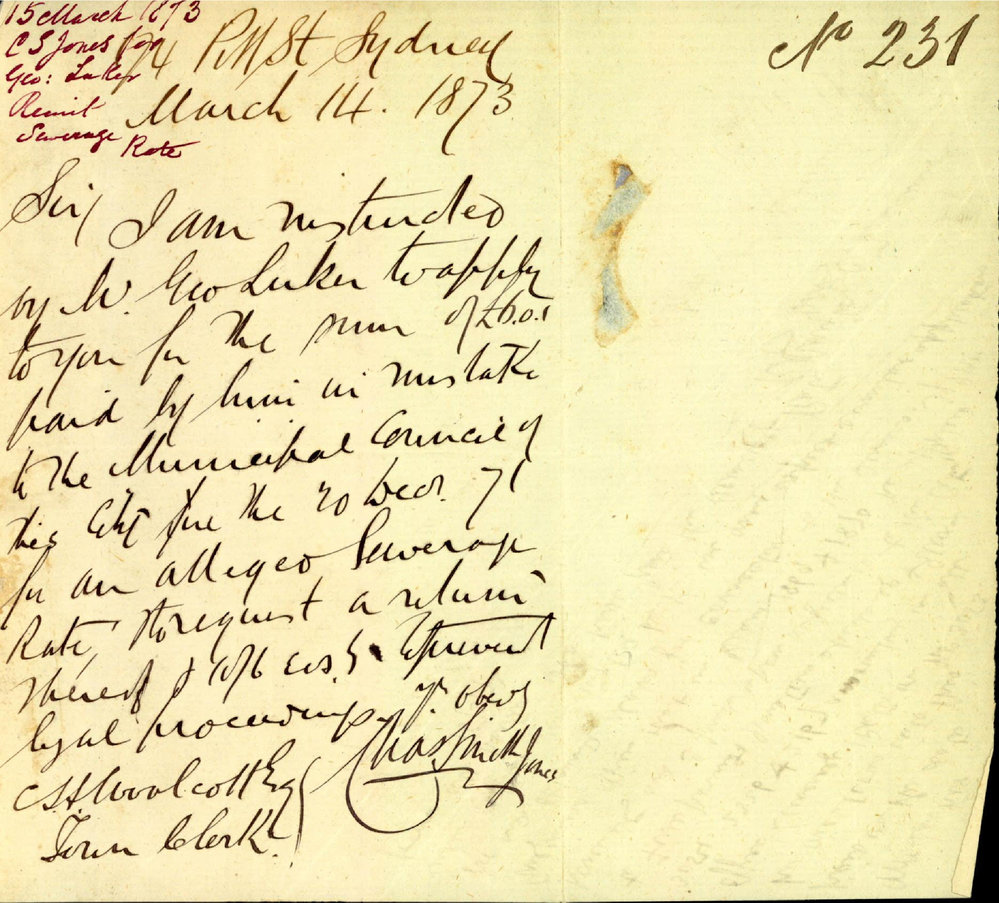 15 March 1873
C S Jones for
Geo: Luker
Remit
Sewerage
Rate
No 231
74 Pitt St Sydney
March 14. 1873
Sir/ I am instructed
by Mr. Geo Luker to apply
to you for the sum of
paid by him in mistake
to the Municipal Council of
this City the 20 Decr. 71
for an alleged Sewerage
Rate, & to request a return
thereof & 10/6 cos. to prevent
legal proceedings yr. obed
Chas Smith Jones
C. H. Woolcott Esq
Town Clerk.